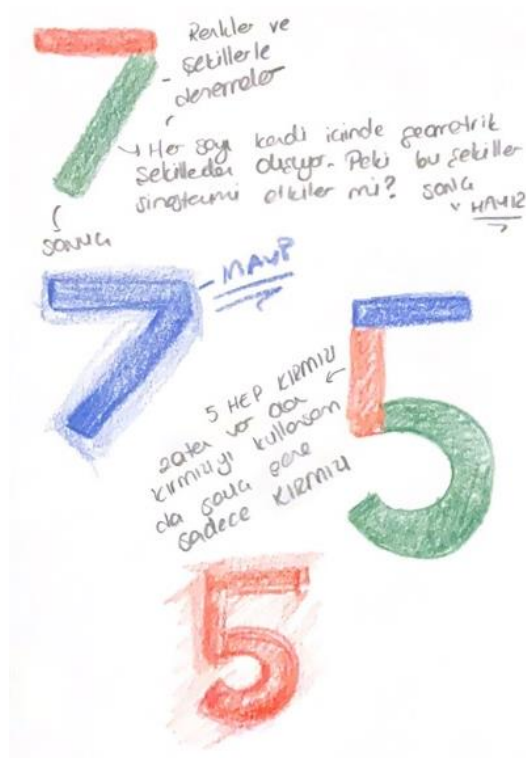 7
Renkler ve
Şekillerle
denemeler
Her sayı kendi içinde geometrik
Şekillerden oluşuyor. Peki bu şekiller
sinestezimi etkiler mi? SONUÇ
HAYIR
SONUÇ
7
MAVİ
5
5 HEP KIRMIZI
zaten ve ara
kırmızıyı kullansam
da sonuç gene
sadece KIRMIZI
5